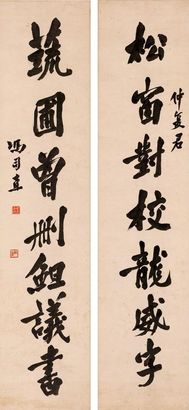 松窗對校龍威字
仲君
蔬圃曾刪議書
馮司直